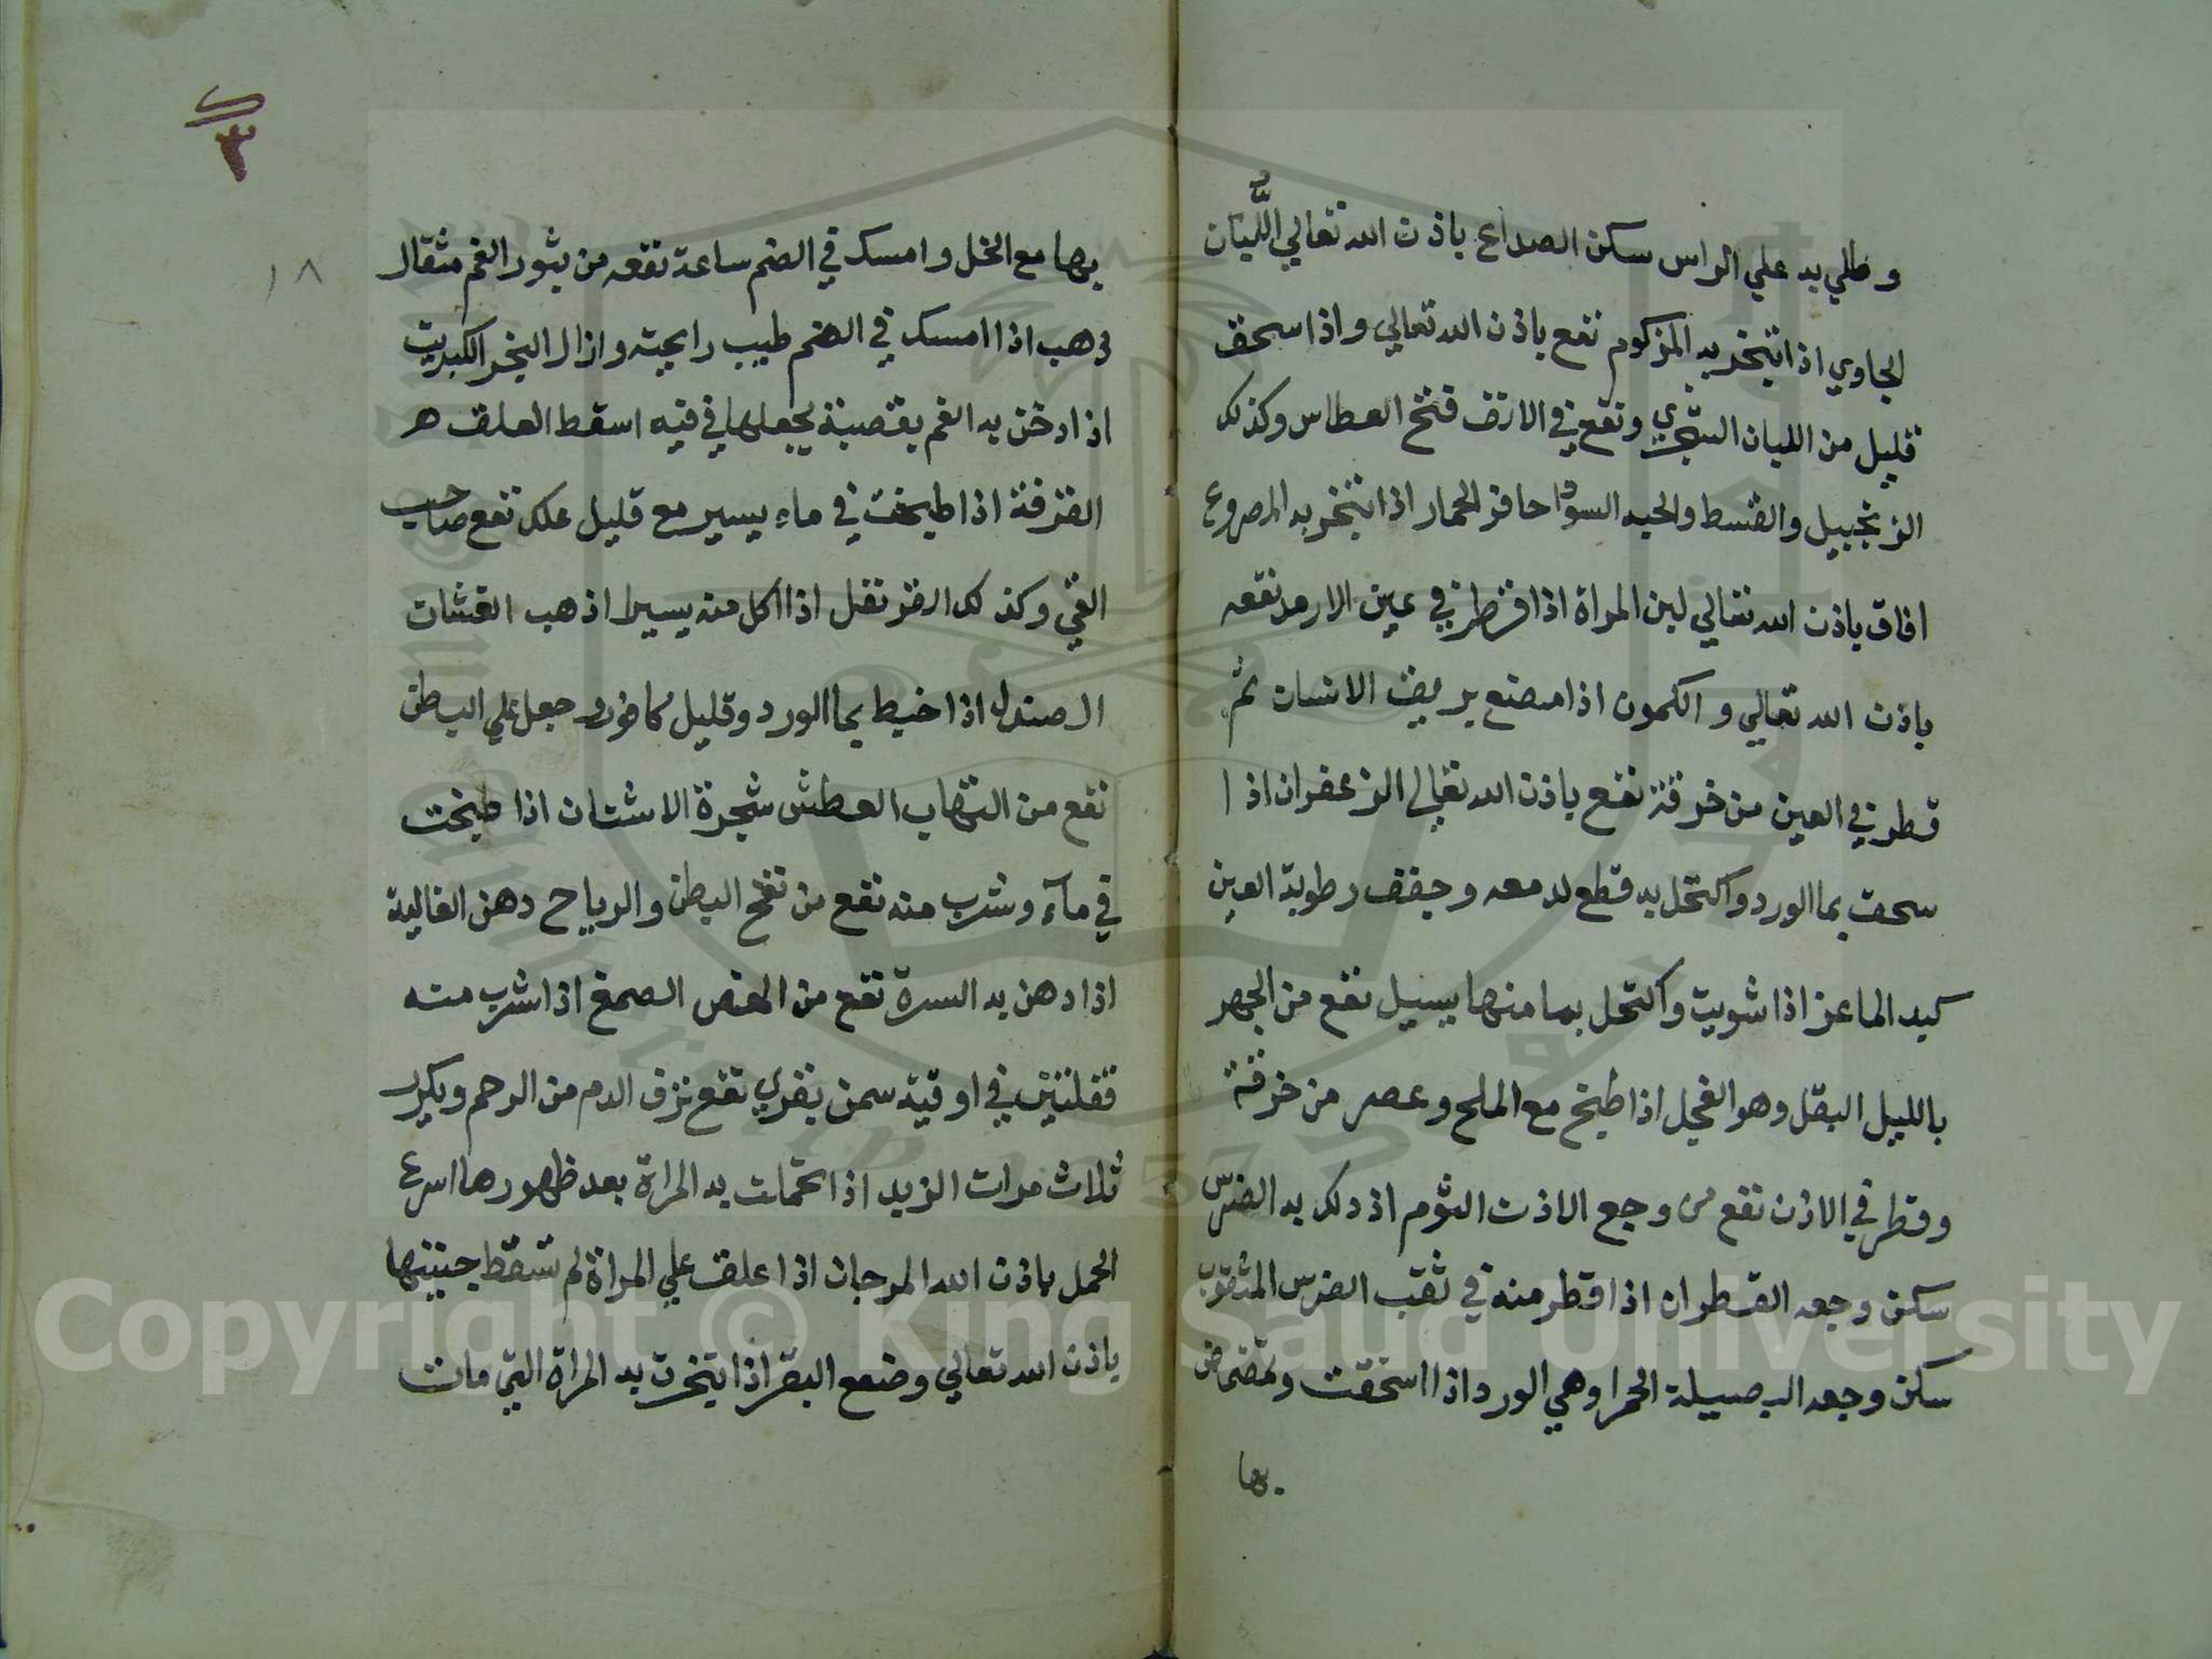 وطلي به علي الراس سكن الصداع باذن الله تعالي اللبان
الجاوي اذا تبخر به المزكوم نفع باذن الله تعالي واذا سحق
قليل من اللبان الشجري ونفع في الانف فتح العطاس وكذلك
الزنجبيل والقسط والحبه السودا حافر الحمار اذا تبخر به المصروع
افاق باذن الله تعالي لبن المراة اذا قطر في عين الارمد نفعه
باذن الله تعالي والكمون اذا مضغ بريق الانسان ثم
قطر في العين من خرقة نفع باذن الله تعالي الزعفران اذا
سحق بما الورد واكتحل به قطع لدمعه وجفف رطوبة العين
كبد الماعز اذا شويت واكتحل بما منها يسيل نفع من الجهر
بالليل البقل وهو الفجل اذا طبخ مع الملح وعصر من خرقة
وقطر في الاذن نفع من وجع الاذن الثوم اذ دلك به الضرس
سكن وجعه القطران اذا قطر منه في ثقب الضرس المثقوب
سكن وجعه البصيلة الحمرا وهي الورد اذا اسحقت وتمضمض
بها
١٨
بها مع الخل وامسك في الفم ساعة نفعه من بثور الفم مثقال
ذهب اذا امسك في الفم طيب رايحته وازال البخر الكبريت
اذا دخن به الفم بقصبة يجعلها في فيه اسقط العلق
القرفة اذا طبخت في ماء يسير مع قليل علك نفع صاحب
القي وكذلك القرنفل اذا اكل منه يسيرا اذهب الغثيان
الصندل اذا خيط بما الورد وقليل كافور جعل علي البطن
نفع من التهاب العطش شجرة الاشنان اذا طبخت
في مآء وشرب منه نفع من نفخ البطن والرياح دهن الغالية
اذا دهن به السرة نفع من المغص الصمغ اذا شرب منه
قفلتين في اوقية سمن بقري نفع نزف الدم من الرحم ويكرر
ثلاث مرات الزبد اذا تحملت به المراة بعد ظهورها اسرع
الحمل باذن الله المرجان اذا علق علي المراة لم تسقط جنينها
باذن الله تعالي وضفع البقر اذا تبخرت به المراة التي مات